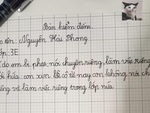 Bản kiểm điểm
tên: Nguyễn Hải Phong
lớp 3E
Lí do em bị phạt nói chuyện riêng, làm việc riêng
lời hứa con xin lỗi cô từ nay con không nói ch
riêng và làm việc riêng trong lớp nữa.